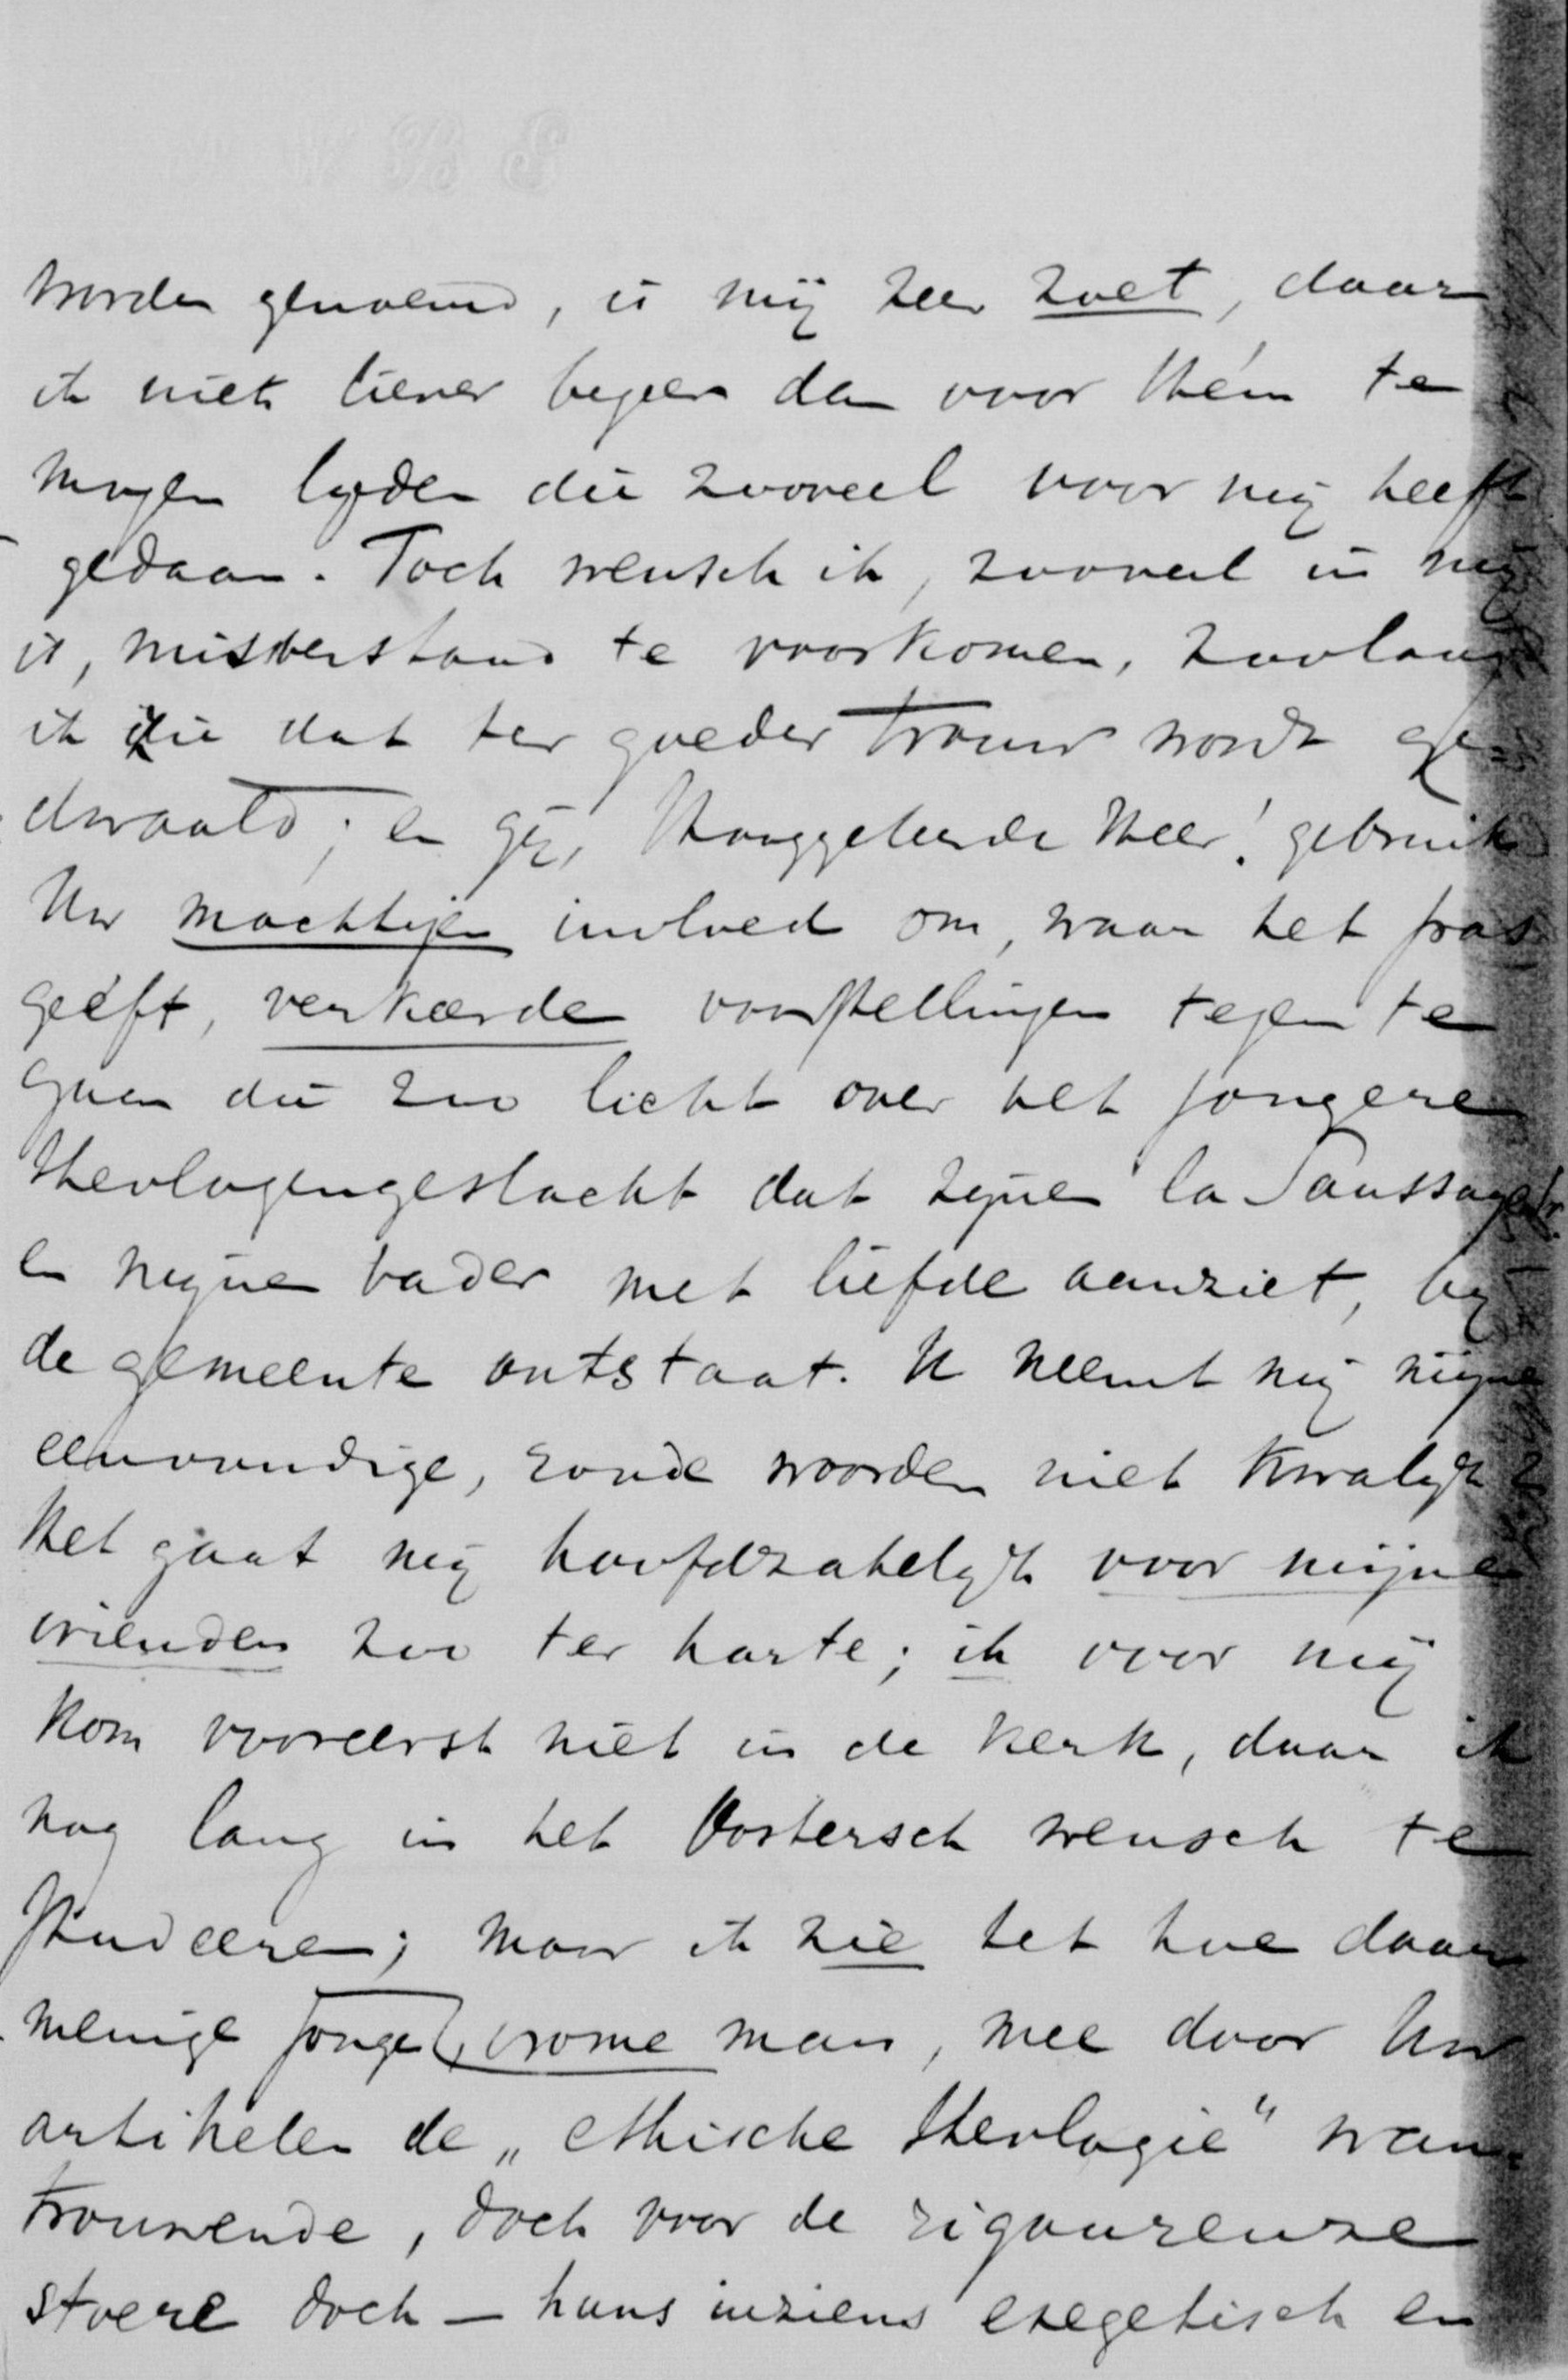 worden genoemd, is mij zeer zoet, daar
ik niets liever begeer dan voor Hém te
mogen lyden die zooveel voor mij heeft
gedaan. Toch wensch ik, zooveel in mij
is, misverstand te voorkomen, zoolang
ik zie dat ter goeder trouw wordt ge-
dwaald; en gij, Hooggeleerde Heer! gebruik
Uw machtigen invloed om, waar het pas
geeft, verkeerde voorstellingen tegen te
gaan die zoo licht over het jongere
theologengeslacht dat zynen la Saussaye
en mynen vader met liefde aanziet, by
de gemeente ontstaat. U neemt mij mijne
eenvoudige, ronde woorden niet kwalyk?
Het gaat mij hoofdzakelyk voor mijne
vrienden zoo ter harte; ik voor mij
kom vooreerst niet in de kerk, daar ik
nog lang in het Oostersch wensch te
studeeren; maar ik zie het hoe daar
menige jonge, vrome man, mee door Uw
artikelen de „ethische theologie" wan-
trouwende, doch voor de rigoureuze
stoere doch — huns inziens exegetisch en